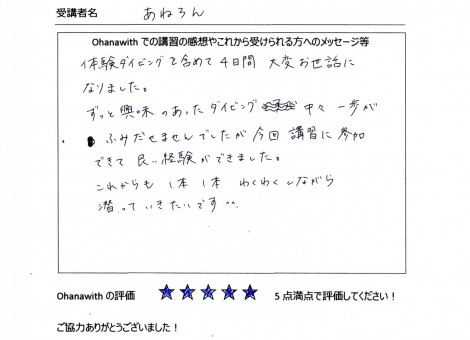 受講者名 あねろん
Ohanawith での講習の感想やこれから受けられる方へのメッセージ等
体験ダイビングを含めて4日間 大変お世話に
なりました。
ずっと興味のあったダイビング 中々 一歩が
ふみだせませんでしたが今回 講習に参加
できて 良い経験ができました。
これからも 1本 1本 わくわくしながら
潜っていきたいです^^
Ohanawith の評価 ★★★★★ 5 点満点で評価してください！
ご協力ありがとうございました！